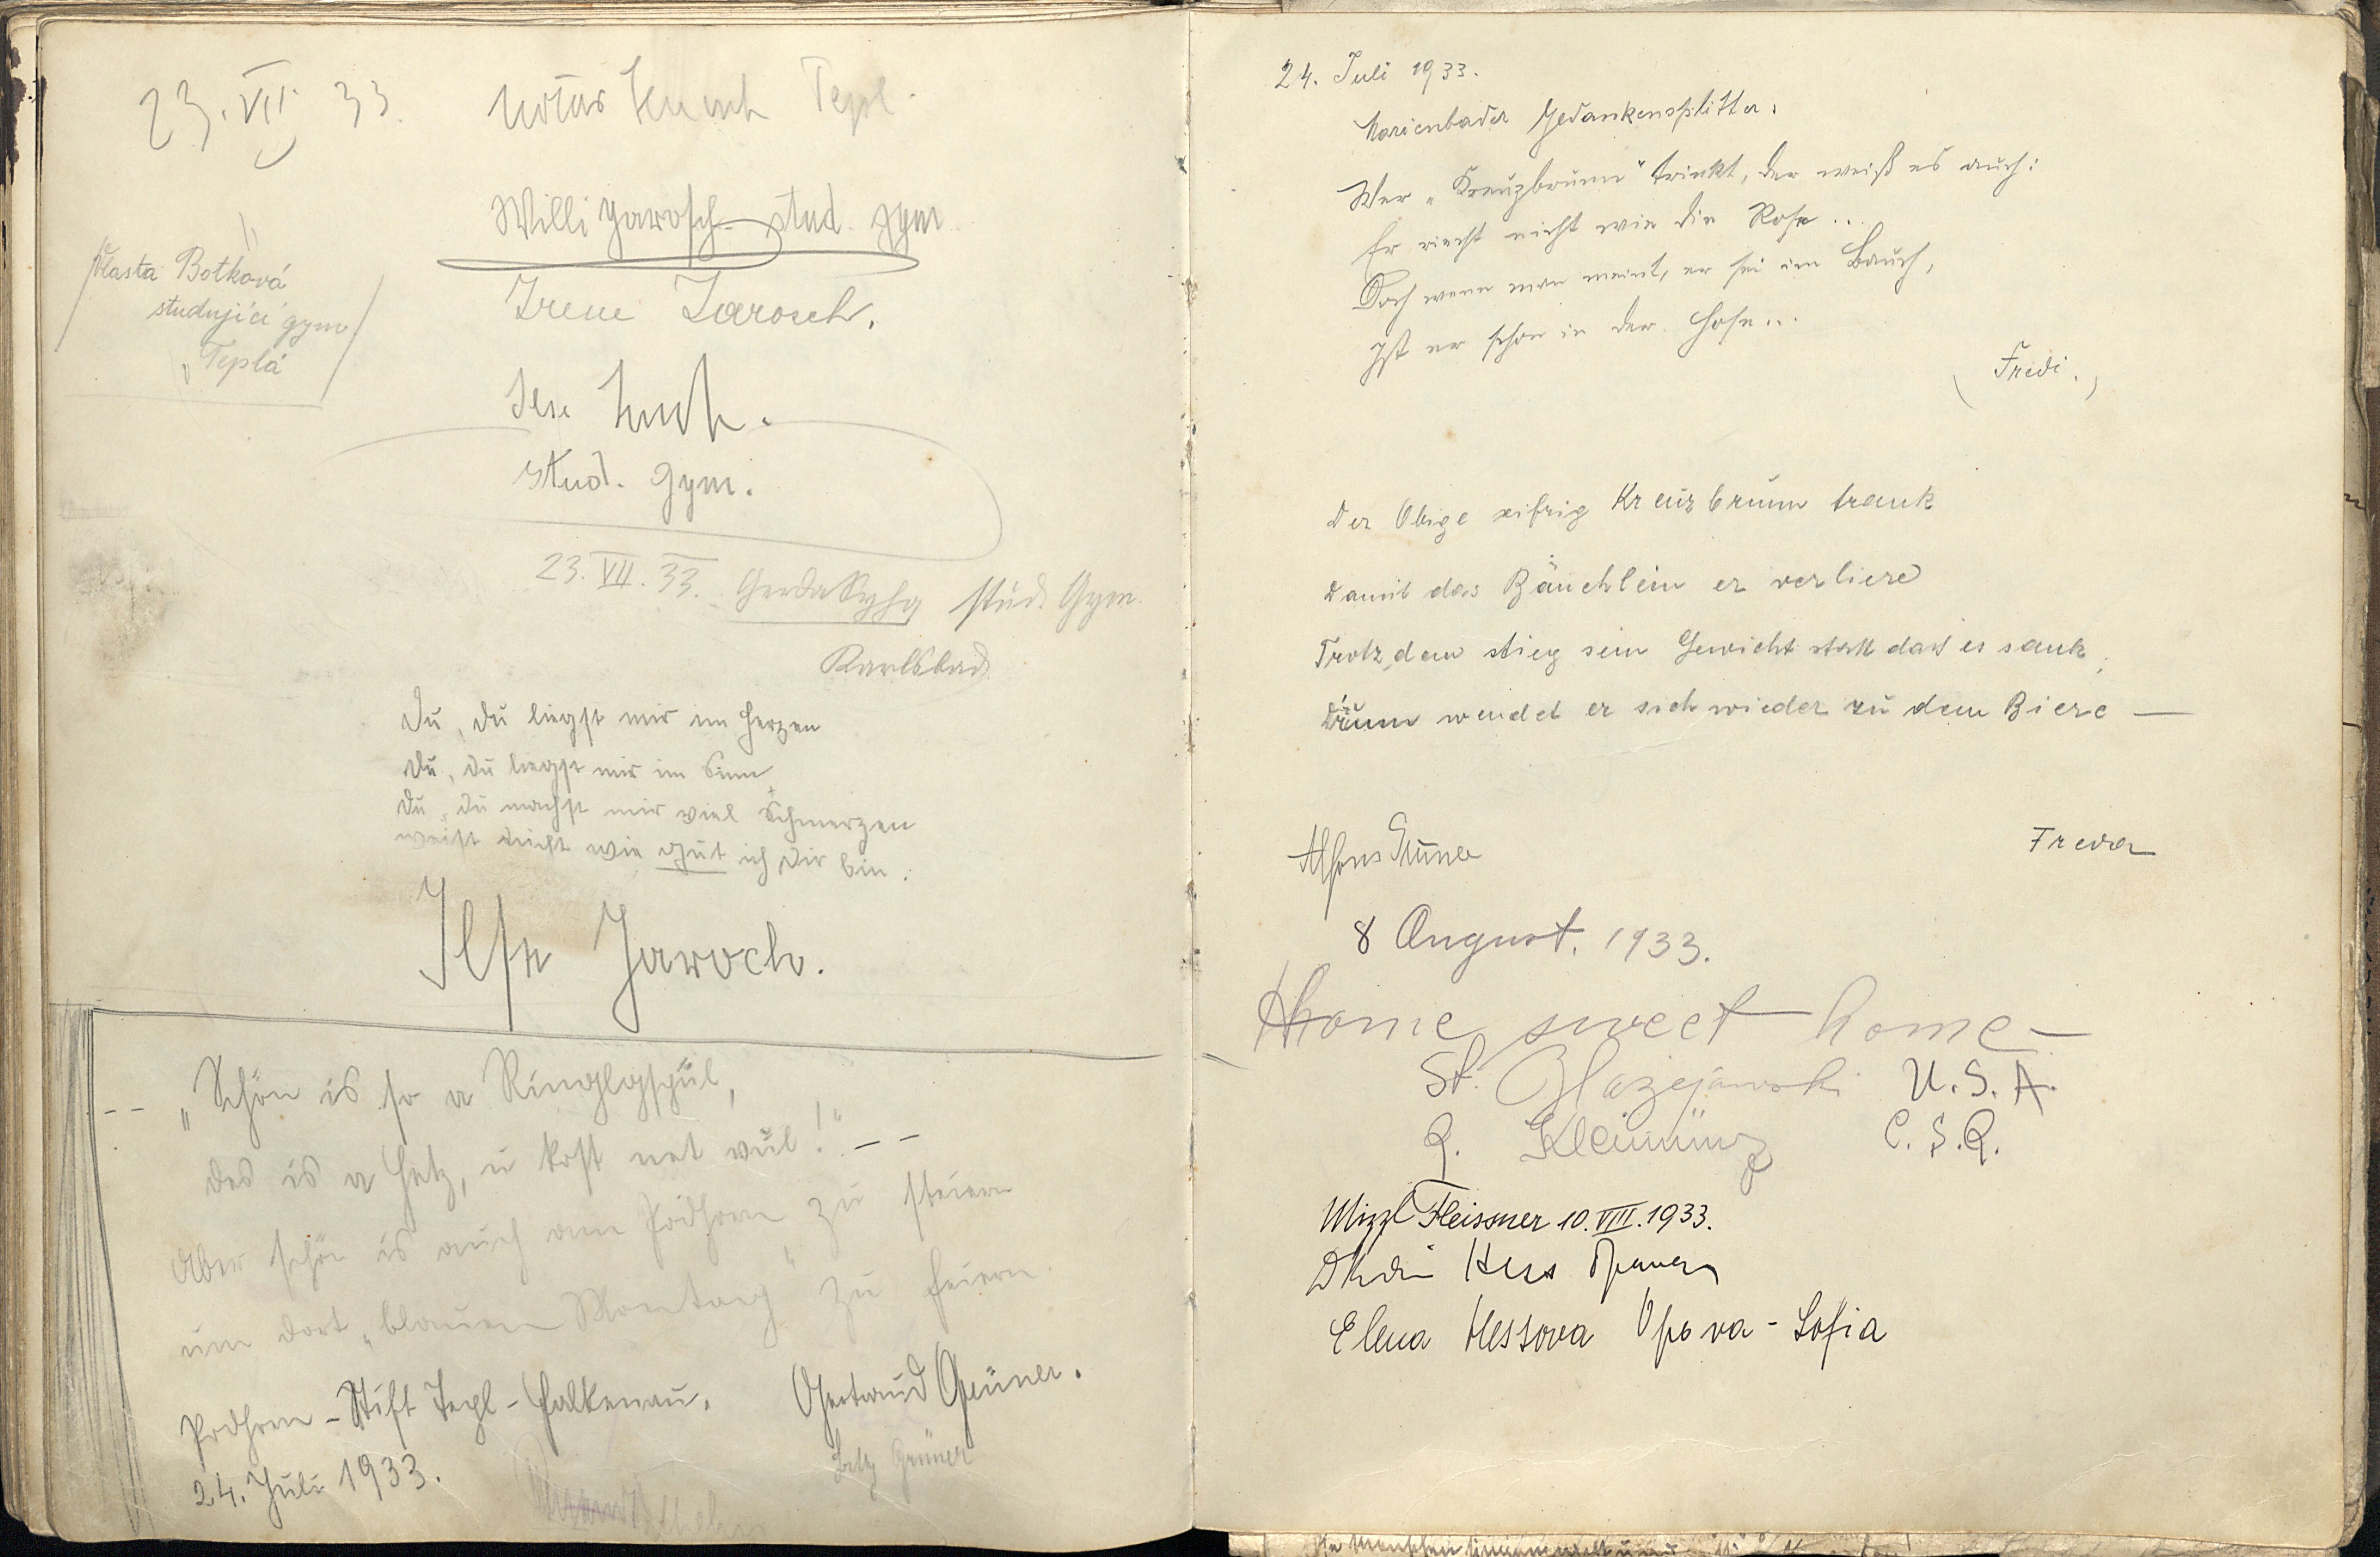 23. VII. 33.
Tepl.
Willi Jarosch stud. gym.
Vlasta Botková
studující gym.
Teplá
Irene Jarosch.
stud. gym.
23. VII. 33. Gerda stud. Gym.
Karlsbad
Du, du liegst mir im Herzen
Du, du liegst mir im Sinn,
Du, du machst mir viel Schmerzen
weist nicht wie gut ich dir bin.
Ilse Jaroch.
-- „Schön is so a Ringlgspül,
des is a Hetz, u kost net vül!" --
Aber schön is auch am Podhorn zu
um dort „blauen Montag" zu feiern.
Podhorn - Stift Tepl - Falkenau.
24. Juli 1933.
Gertraud Grüner.
Grüner
24. Juli 1933.
Marienbader Gedankensplitter.
Wer „Kreuzbrunn" trinkt, der weiß es auch:
Er riecht nicht wie die Rose ...
Doch wenn man meint, er sei im Bauch,
Ist er schon in der Hose ...
(Fredi.)
Der Obige eifrig Kreuzbrunn trank
Damit das Bäuchlein er verliere
Trotzdem stieg sein Gewicht statt das es sank,
Drum wendet er sich wieder zu dem Biere —
Alfons Grüner
8 August. 1933.
Home sweet home —
St. U.S.A.
Kleinmünz C.S.R.
Mizzl Fleissner 10. VIII. 1933.
Hess
Elena Hessova Opava - Sofia